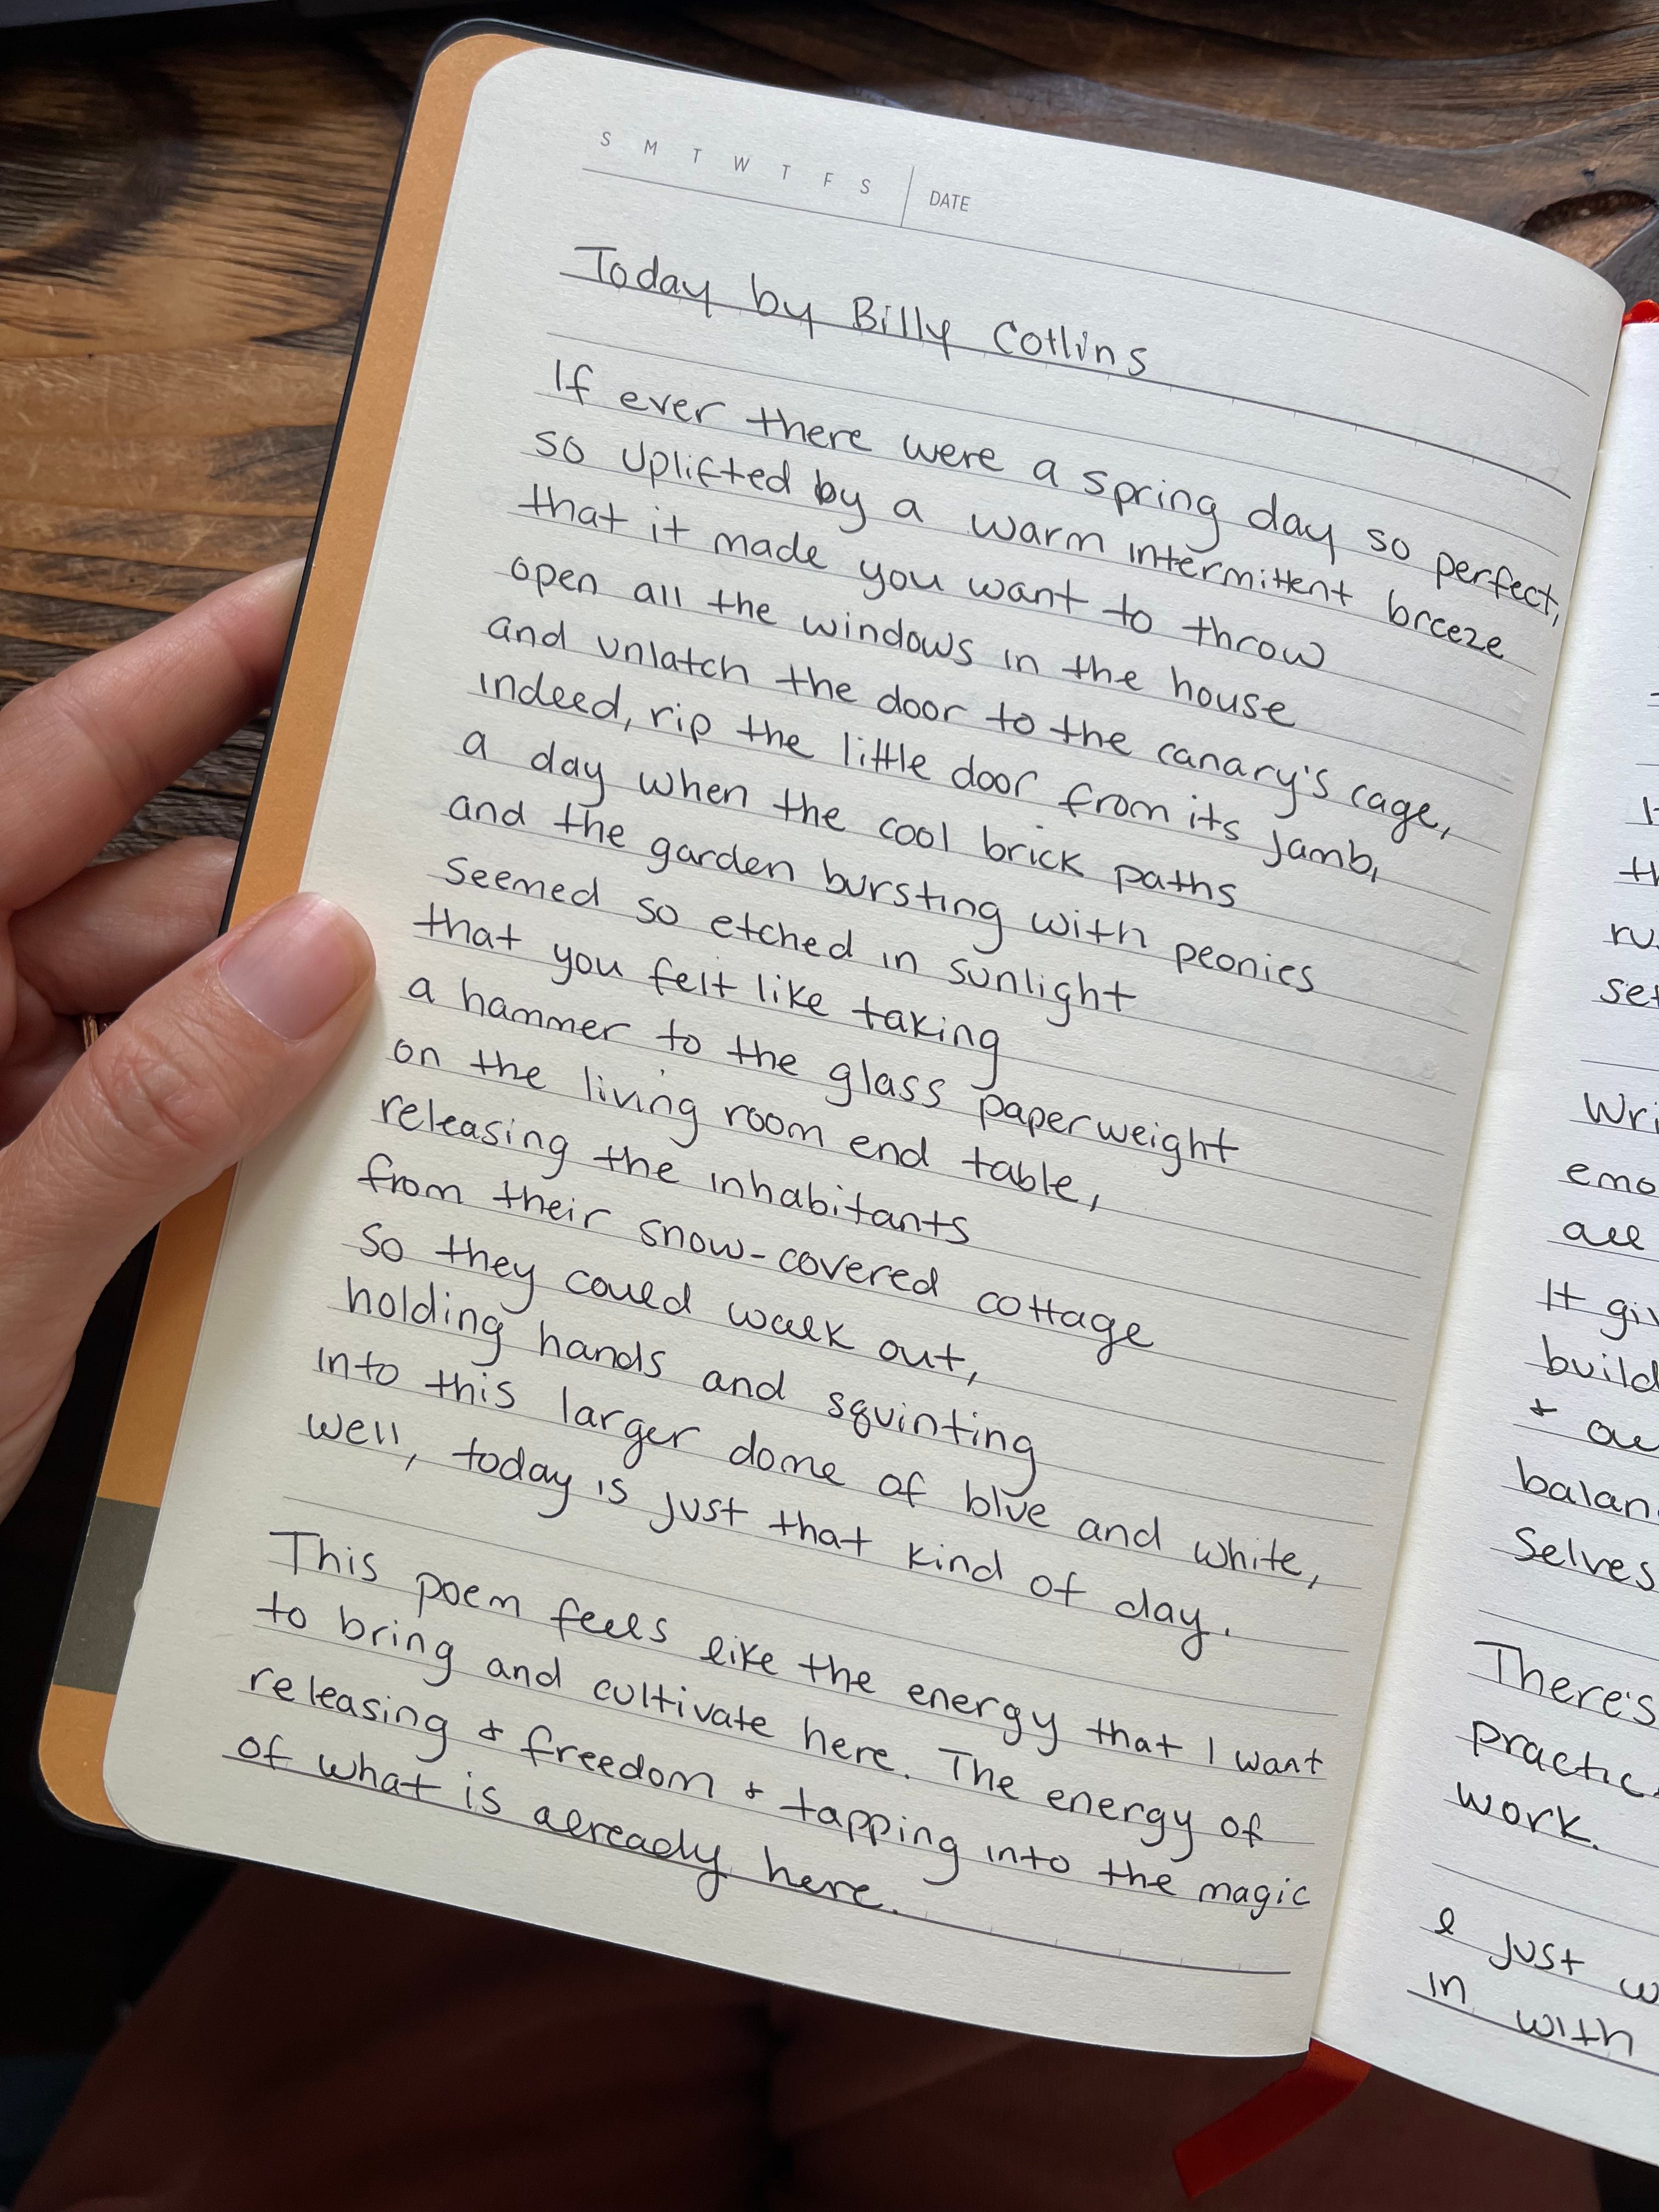 S M T W T F S DATE
Today by Billy Collins
If ever there were a spring day so perfect,
so uplifted by a warm intermittent breeze
that it made you want to throw
open all the windows in the house
and unlatch the door to the canary's cage,
indeed, rip the little door from its jamb,
a day when the cool brick paths
and the garden bursting with peonies
seemed so etched in sunlight
that you felt like taking
a hammer to the glass paperweight
on the living room end table,
releasing the inhabitants
from their snow-covered cottage
so they could walk out,
holding hands and squinting
into this larger dome of blue and white,
well, today is just that kind of day.
This poem feels like the energy that I want
to bring and cultivate here. The energy of
releasing & freedom & tapping into the magic
of what is already here.
all
It
build
&
Selves
There's
work.
I just
in with